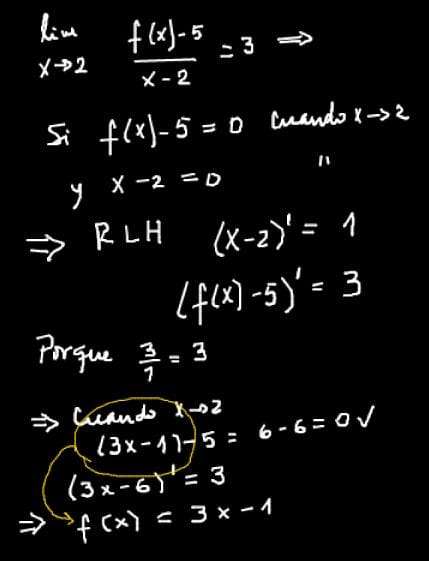 lim f(x)-5 = 3 ⟹
x→2 x-2
Si f(x)-5 = 0 cuando x→2
y x-2 = 0 "
⟹ RLH (x-2)' = 1
(f(x)-5)' = 3
Porque 3/1 = 3
⟹ Cuando x→2
(3x-1)-5 = 6-6=0√
(3x-6)' = 3
⟹ f(x) = 3x-1